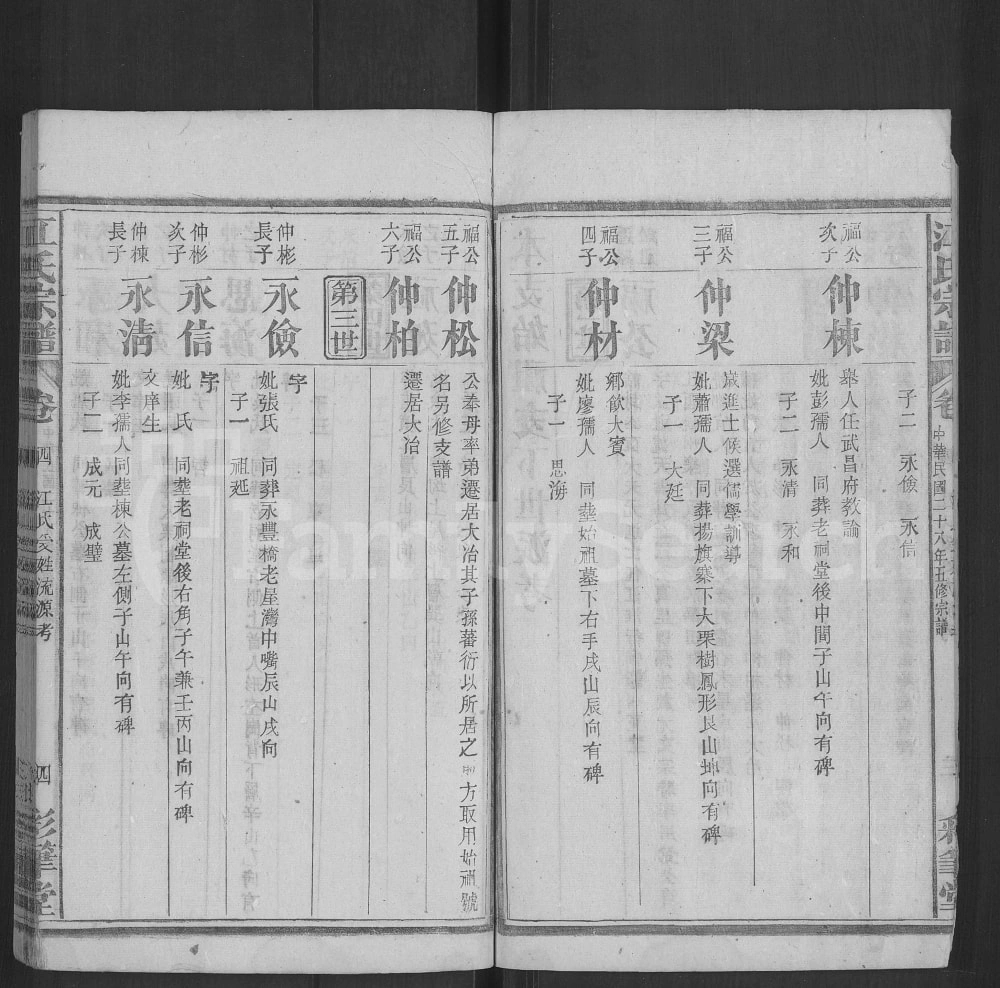 江氏宗譜
卷
中華民國二十八年五修宗譜
彩筆堂
子二 永儉 永信
福公次子
仲棟
舉人任武昌府教諭
妣彭孺人 同葬老祠堂後中間子山午向有碑
子二 永清 永和
福公三子
仲梁
歲進士候選儒學訓導
妣蕭孺人 同葬揚旗寨下大栗樹鳳形艮山坤向有碑
子一 大廷
福公四子
仲材
鄉飲大賓
妣廖孺人 同塟始祖墓下右手戌山辰向有碑
子一 思海
福公五子
仲松
公奉母率弟遷居大冶其子孫蕃衍以所居之地方取用始祖號
名另修支譜
福公六子
仲柏
遷居大冶
第三世
仲彬長子
永儉
字
妣張氏 同葬永豐橋老星灣中嘴辰山戌向
子一 祖延
仲彬次子
永信
字
妣 氏 同塟老祠堂後右角子午兼壬丙山向有碑
仲棟長子
永清
文庠生
妣李孺人同塟棟公墓左側子山午向有碑
子二 成元 成璧
江氏宗譜
卷
四 江氏受姓流源考
四
彩筆堂